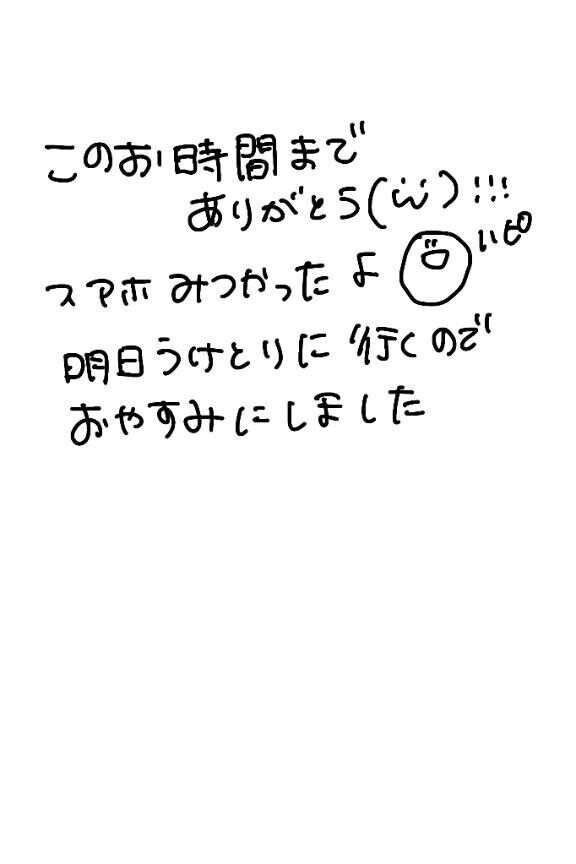 このお時間まで
ありがとう(ﾟωﾟ)!!!
スマホみつかったよ
明日うけとりに行くので
おやすみにしました